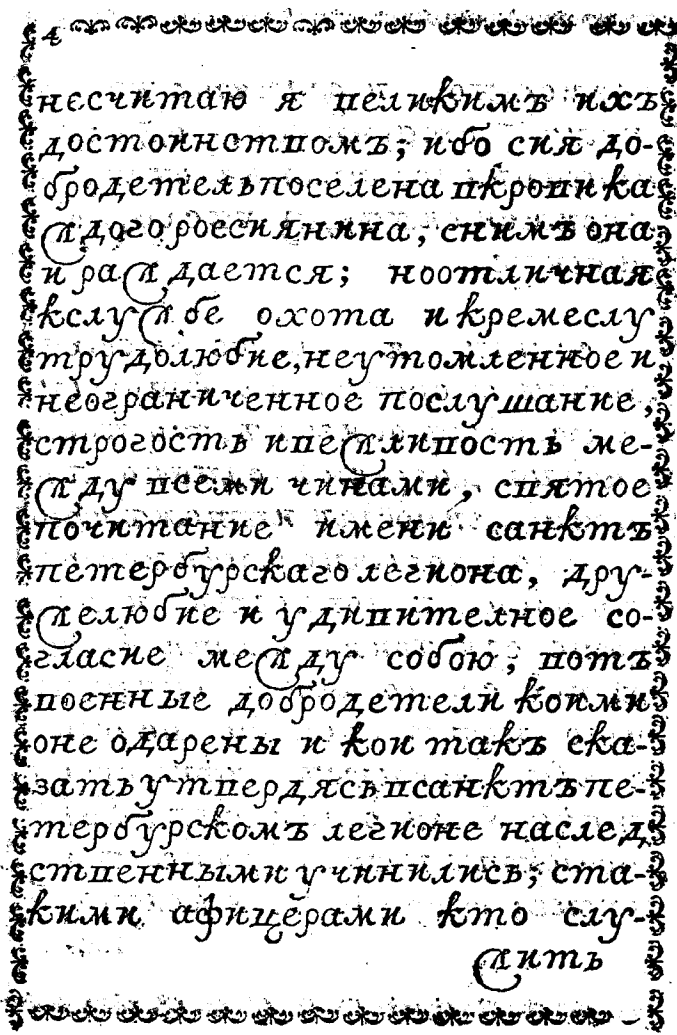 4
несчитаю я великимъ ихъ
достоинствомъ; ибо сия до-
бродетель поселена вкрови ка
ждого россиянина, снимъ она
и раждается; ноотличная
кслужбе охота и кремеслу
трудолюбие, неутомленное и
неограниченное послушание,
строгость ивежливость ме-
жду всеми чинами, святое
почитание имени санктъ
петербурскаго легиона, дру-
желюбие и удивителное со-
гласие между собою; вотъ
военные добродетели коими
оне одарены и кои такъ ска-
зать утвердясь всанктъ пе-
тербурскомъ легионе наслед
ственными учинились; ста-
кими афицерами кто слу-
жить